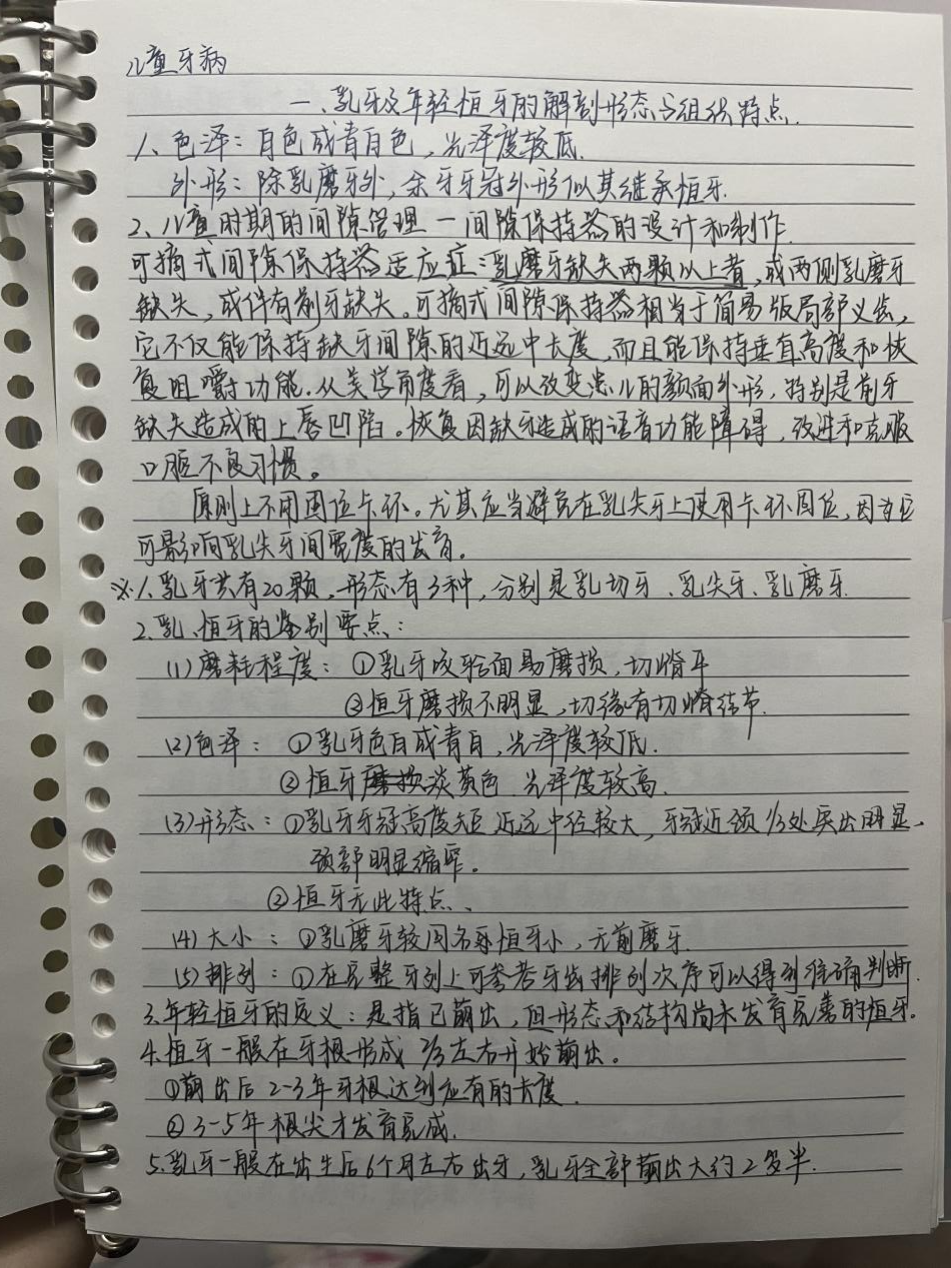 儿童牙病
一、乳牙及年轻恒牙的解剖形态与组织特点.
1、色泽：白色或青白色，光泽度较低.
外形：除乳磨牙外，余牙牙冠外形似其继承恒牙.
2、儿童时期的间隙管理 — 间隙保持器的设计和制作.
可摘式间隙保持器适应症：乳磨牙缺失两颗以上者，或两侧乳磨牙
缺失，或伴有前牙缺失。可摘式间隙保持器相当于简易版局部义齿，
它不仅能保持缺牙间隙的近远中长度，而且能保持垂直高度和恢
复咀嚼功能。从美学角度看，可以改变患儿的颜面外形，特别是前牙
缺失造成的上唇凹陷。恢复因缺牙造成的语音功能障碍，改进和克服
口腔不良习惯。
原则上不用固位卡环。尤其应当避免在乳尖牙上使用卡环固位，因为它
可影响乳尖牙间宽度的发育。
※1、乳牙共有20颗，形态有3种，分别是乳切牙、乳尖牙、乳磨牙.
2、乳、恒牙的鉴别要点：
(1)磨耗程度：①乳牙咬𬌗面易磨损，切嵴平
②恒牙磨损不明显，切缘有切嵴结节.
(2)色泽：①乳牙色白或青白，光泽度较低.
②恒牙淡黄色 光泽度较高.
(3)形态：①乳牙牙冠高度短 近远中径较大，牙冠近颈1/3处突出明显，
颈部明显缩窄。
②恒牙无此特点、
(4)大小：①乳磨牙较同名称恒牙小，无前磨牙.
(5)排列：①在完整牙列上可参考牙齿排列次序可以得到准确判断.
3、年轻恒牙的定义：是指已萌出，但形态和结构尚未发育完善的恒牙。
4、恒牙一般在牙根形成2/3左右开始萌出。
①萌出后2-3年牙根达到应有的长度.
②3-5年根尖才发育完成.
5、乳牙一般在出生后6个月左右出牙，乳牙全部萌出大约2岁半.